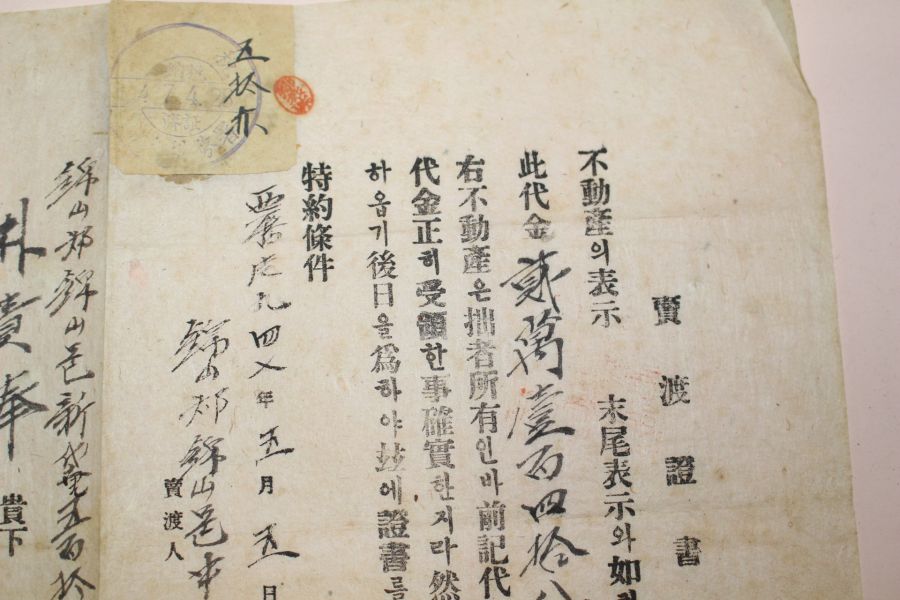 賣渡證書
不動産의表示 末尾表示와如
此代金貳萬壹百四拾八
右不動産은拙者所有인바前記代
代金正히受領한事確實한지라然
하옵기後日을爲하야玆에證書를
特約條件
西曆壹九四八年五月五日
錦山郡錦山邑中
賣渡人
錦山郡錦山邑新垈里五百拾
朴 奉 貴下
五拾